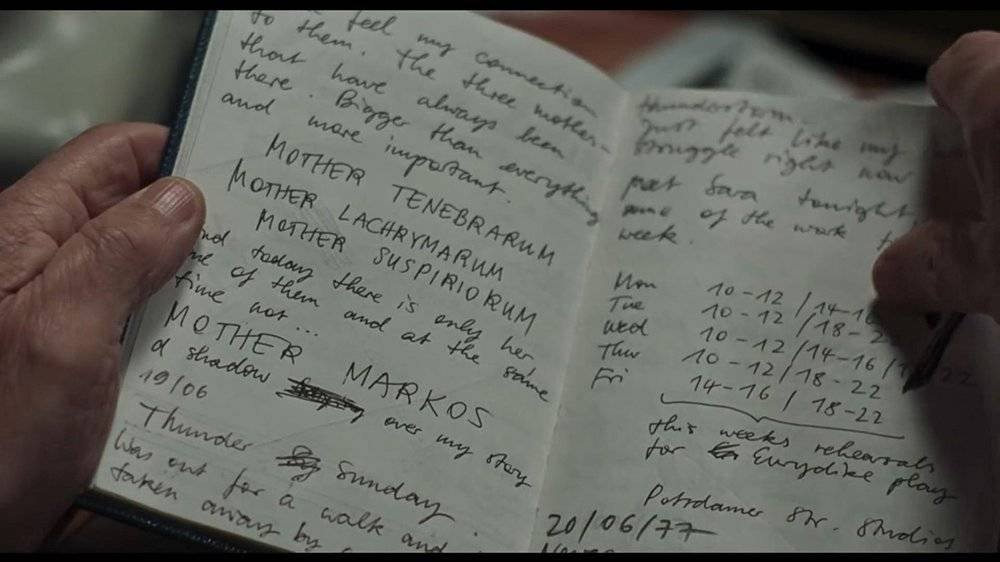 feel my connection
to them. The three mother-
that have always been
there. Bigger than everything
and more important.
MOTHER TENEBRARUM
MOTHER LACHRYMARUM
MOTHER SUSPIRIORUM
nd today there is only her
ne of them and at the same
time not...
MOTHER MARKOS
d shadow over my story
19/06
Thunder Sunday
Was out for a walk and
taken away by
thunderstorm.
Just felt like my
struggle right now
Sara tonight,
some of the work
week.
Mon 10-12 / 14-16
Tue 10-12 / 18-2
Wed 10-12 / 14-16 / 22
Thur 10-12 / 18-22
Fri 14-16 / 18-22
this weeks rehearsals
for Eurydike play
Potsdamer Str. Studios
20/06/77